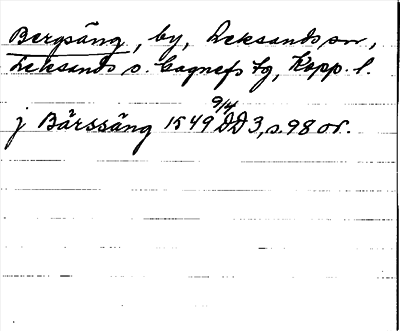 Bergsäng, by, Leksands sn,
Leksands o. Gagnefs tg, Kopp. l.
j Bärssäng 1549 9/4 DD 3, s. 98 or.